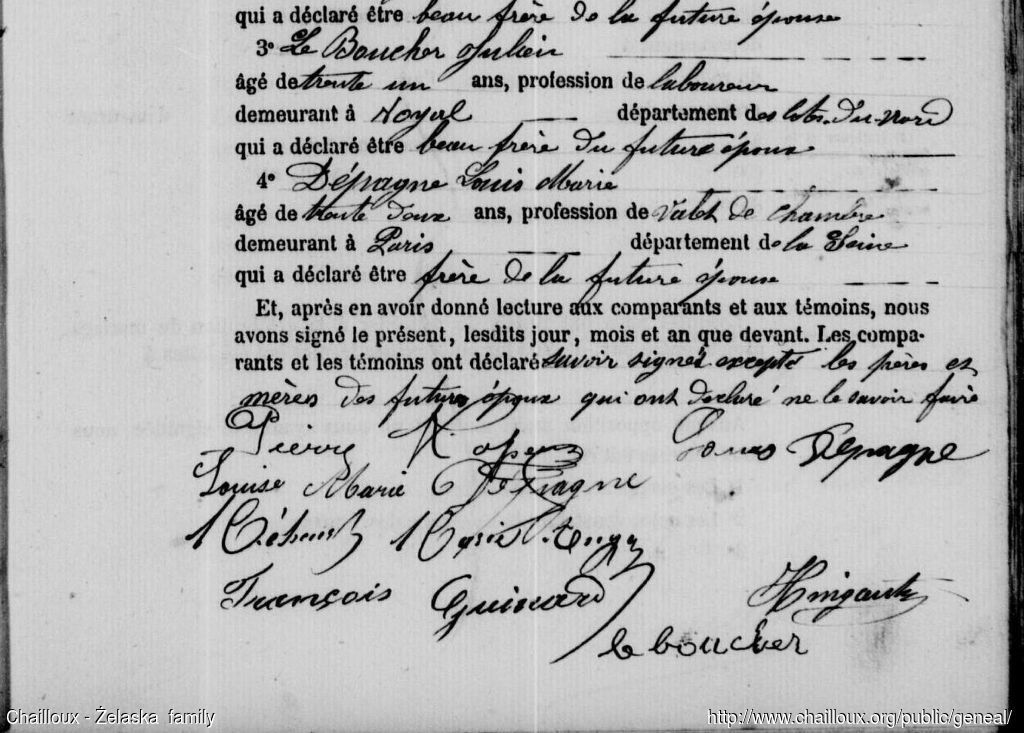 qui a déclaré être beau frère de la future épouse
3° Le Boucher Julien
âgé de trente un ans, profession de laboureur
demeurant à Noyal département des Côtes-du-Nord
qui a déclaré être beau frère du futur époux
4° Dépagne Louis Marie
âgé de trente deux ans, profession de valet de chambre
demeurant à Paris département de la Seine
qui a déclaré être frère de la future épouse
Et, après en avoir donné lecture aux comparants et aux témoins, nous
avons signé le présent, lesdits jour, mois et an que devant. Les compa-
rants et les témoins ont déclaré savoir signer excepté les pères et
mères des futurs époux qui ont déclaré ne le savoir faire
Pierre Louis Depagne
Louise Marie Depagne
Marie Ange
François Guinard Hingant
le boucher
Chailloux - Żelaska family http://www.chailloux.org/public/geneal/